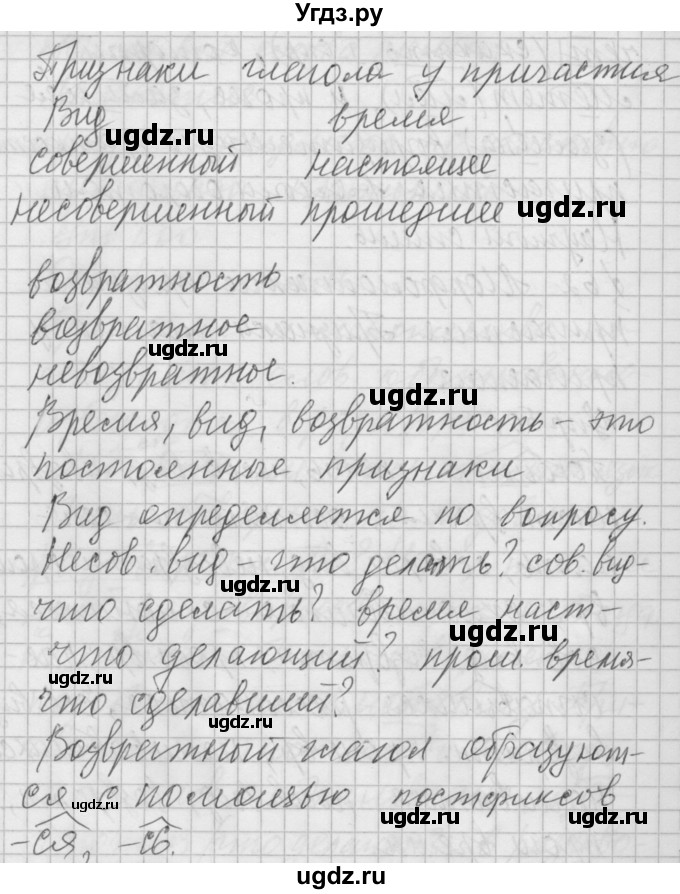 Угдз.ру
Признаки глагола у причастия
Вид время
ugdz.ru ugdz.ru
совершенный настоящее
несовершенный прошедшее ugdz.ru
возвратность
возвратное
ugdz.ru
невозвратное.
ugdz.ru
Время, вид, возвратность – это
постоянные признаки
Вид определяется по вопросу.
Несов. вид – что делать? сов. вид –
ugdz.ru
что сделать? время наст –
ugdz.ru
что делающий? прош. время –
ugdz.ru
что сделавший?
ugdz.ru
Возвратный глагол образуют-
ся с помощью постфиксов
ugdz.ru ugdz.ru
-ся, -сь.
ugdz.ru